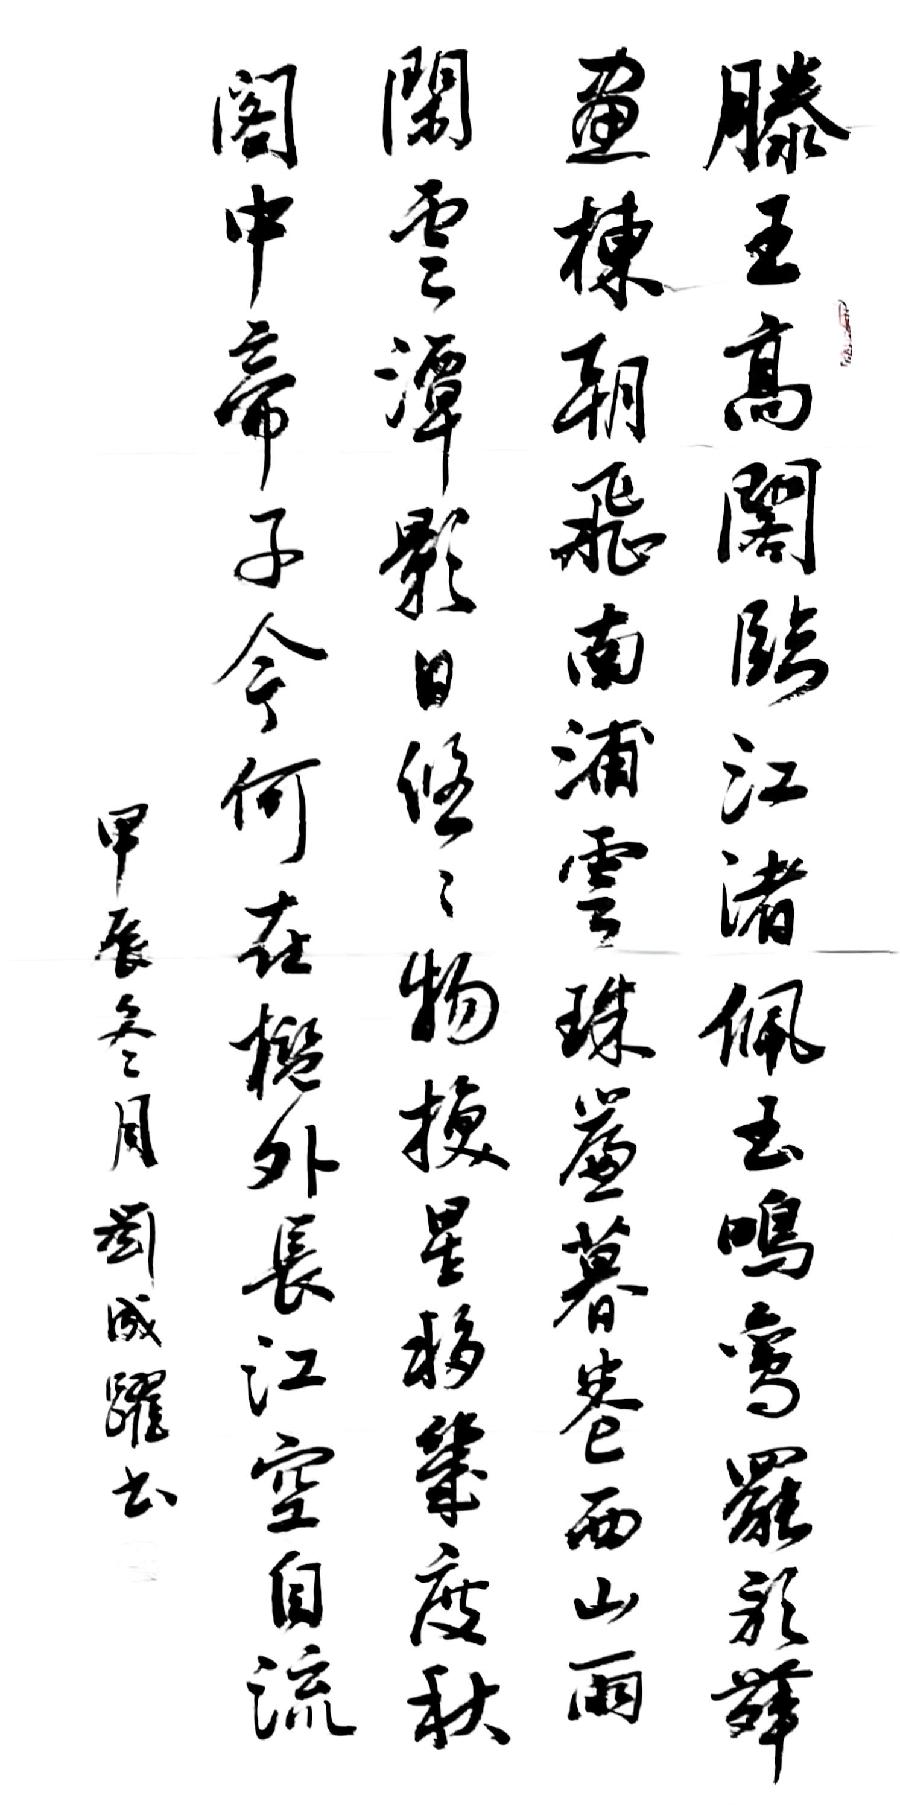 滕王高閣臨江渚佩玉鳴鸞罷歌舞
畫棟朝飛南浦雲珠簾暮卷西山雨
閑雲潭影日悠〻物換星移幾度秋
閣中帝子今何在檻外長江空自流
甲辰冬月劉成躍书